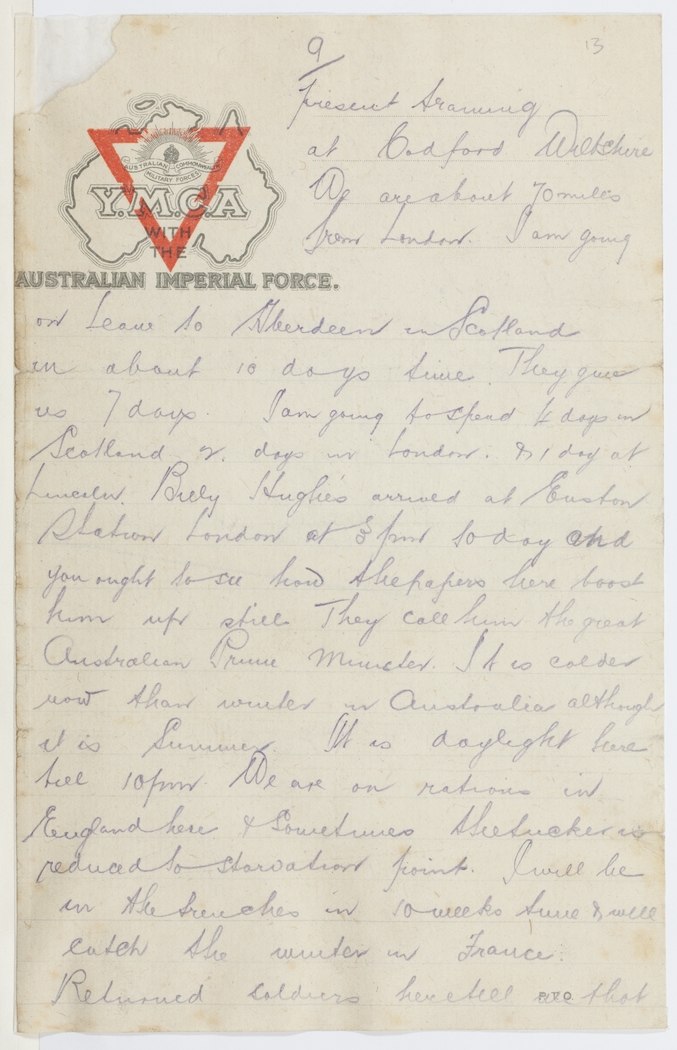 9/
13
present training
at Codford Wiltshire
We are about 70 miles
from London. I am going
AUSTRALIAN COMMONWEALTH
MILITARY FORCES
Y.M.C.A
WITH
THE
AUSTRALIAN IMPERIAL FORCE.
on Leave to Aberdeen in Scotland
in about 10 days time. They give
us 7 days. I am going to spend 4 days in
Scotland 2. days in London. & 1 day at
Lincoln. Billy Hughes arrived at Euston
Station London at 3 pm today and
you ought to see how the papers here boost
him up still They call him the great
Australian Prime Minister. It is colder
now than winter in Australia although
it is Summer. It is daylight here
till 10 pm. We are on rations in
England here & Sometimes the tucker is
reduced to starvation point. I will be
in the trenches in 10 weeks time & will
catch the winter in France.
Returned soldiers here tell us that
P.T.O.